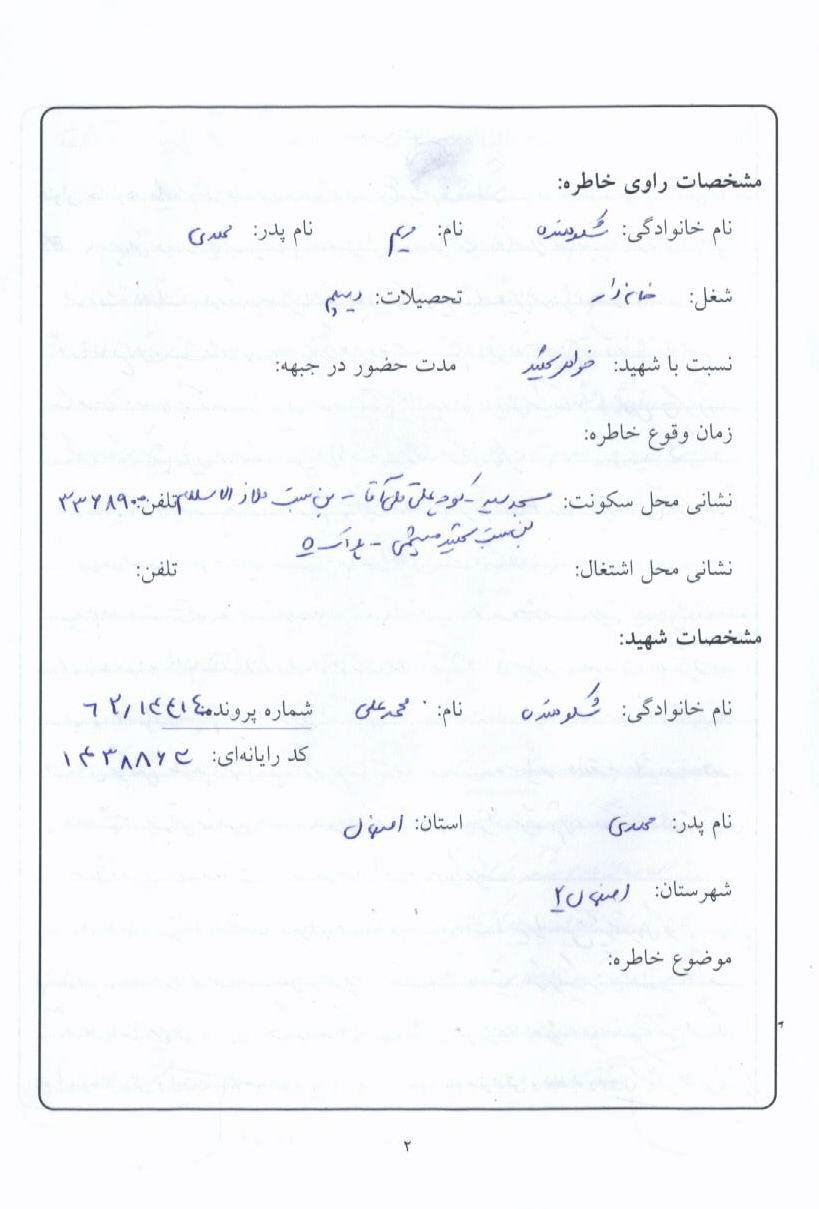 مشخصات راوی خاطره:
نام خانوادگی: شکوهنده نام: مریم نام پدر: مهدی
شغل: خانه‌دار تحصیلات: دیپلم
نسبت با شهید: خواهر شهید مدت حضور در جبهه:
زمان وقوع خاطره:
نشانی محل سکونت: مسجد سید - کوچه - بن بست تلفن:
بن بست شهید - پلاک ۵
نشانی محل اشتغال: تلفن:
مشخصات شهید:
نام خانوادگی: شکوهنده نام: محمدعلی شماره پرونده:
کد رایانه‌ای: ۱۴۳۸۸۶۳
نام پدر: مهدی استان: اصفهان
شهرستان: اصفهان ۲
موضوع خاطره:
۲